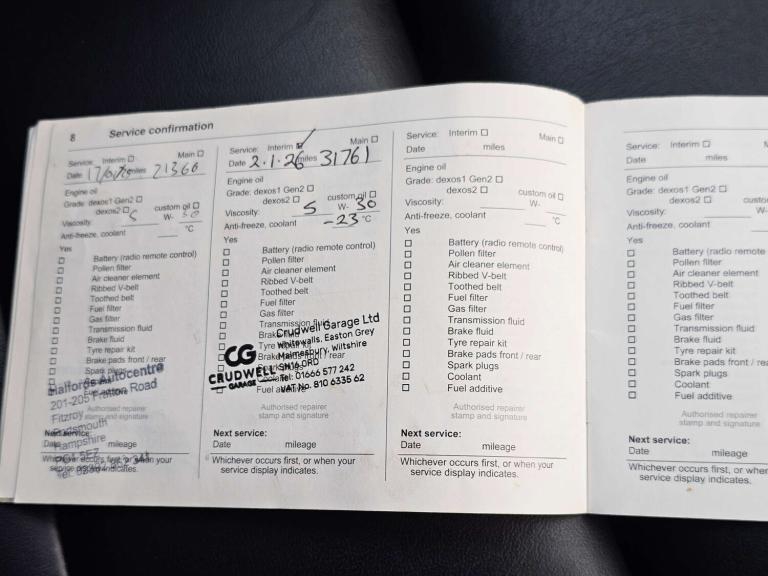 8 Service confirmation
Service: Interim ☐ Main ☐
Date miles 21360
Engine oil
Grade: dexos1 Gen2 ☐
dexos2 ☐ custom oil ☐
Viscosity: 5 W- 30
Anti-freeze, coolant °C
Yes
☐ Battery (radio remote control)
☐ Pollen filter
☐ Air cleaner element
☐ Ribbed V-belt
☐ Toothed belt
☐ Fuel filter
☐ Gas filter
☐ Transmission fluid
☐ Brake fluid
☐ Tyre repair kit
☐ Brake pads front / rear
☐ Spark plugs
Fuel additive
Halfords Autocentre
201-205 Fratton Road
Fitzroy
Portsmouth
Hampshire
PO1 5EZ
Authorised repairer
stamp and signature
Next service:
Date mileage
Whichever occurs first, or when your
service display indicates.
Service: Interim ☑ Main ☐
Date 2.1.26 miles 31761
Engine oil
Grade: dexos1 Gen2 ☐
dexos2 ☐ custom oil ☐
Viscosity: 5 W- 30
Anti-freeze, coolant -23 °C
Yes
☐ Battery (radio remote control)
☐ Pollen filter
☐ Air cleaner element
☐ Ribbed V-belt
☐ Toothed belt
☐ Fuel filter
☐ Gas filter
☐ Transmission fluid
☐ Brake fluid
☐ Tyre repair kit
Brake pads front / rear
Spark plugs
Coolant
☐ Fuel additive
CG
CRUDWELL
GARAGE
Crudwell Garage Ltd
Whitewalls, Easton Grey
Malmesbury, Wiltshire
SN16 0RD
Tel: 01666 577 242
VAT No. 810 6335 62
Authorised repairer
stamp and signature
Next service:
Date mileage
Whichever occurs first, or when your
service display indicates.
Service: Interim ☐ Main ☐
Date miles
Engine oil
Grade: dexos1 Gen2 ☐
dexos2 ☐ custom oil ☐
Viscosity: W-
Anti-freeze, coolant °C
Yes
☐ Battery (radio remote control)
☐ Pollen filter
☐ Air cleaner element
☐ Ribbed V-belt
☐ Toothed belt
☐ Fuel filter
☐ Gas filter
☐ Transmission fluid
☐ Brake fluid
☐ Tyre repair kit
☐ Brake pads front / rear
☐ Spark plugs
☐ Coolant
☐ Fuel additive
Authorised repairer
stamp and signature
Next service:
Date mileage
Whichever occurs first, or when your
service display indicates.
Service: Interim ☐
Date miles
Engine oil
Grade: dexos1 Gen2 ☐
dexos2 ☐ custom
Viscosity:
Anti-freeze, coolant
Yes
☐ Battery (radio remote
☐ Pollen filter
☐ Air cleaner element
☐ Ribbed V-belt
☐ Toothed belt
☐ Fuel filter
☐ Gas filter
☐ Transmission fluid
☐ Brake fluid
☐ Tyre repair kit
☐ Brake pads front / rear
☐ Spark plugs
☐ Coolant
☐ Fuel additive
Authorised repairer
stamp and signature
Next service:
Date mileage
Whichever occurs first, or when
service display indicates.